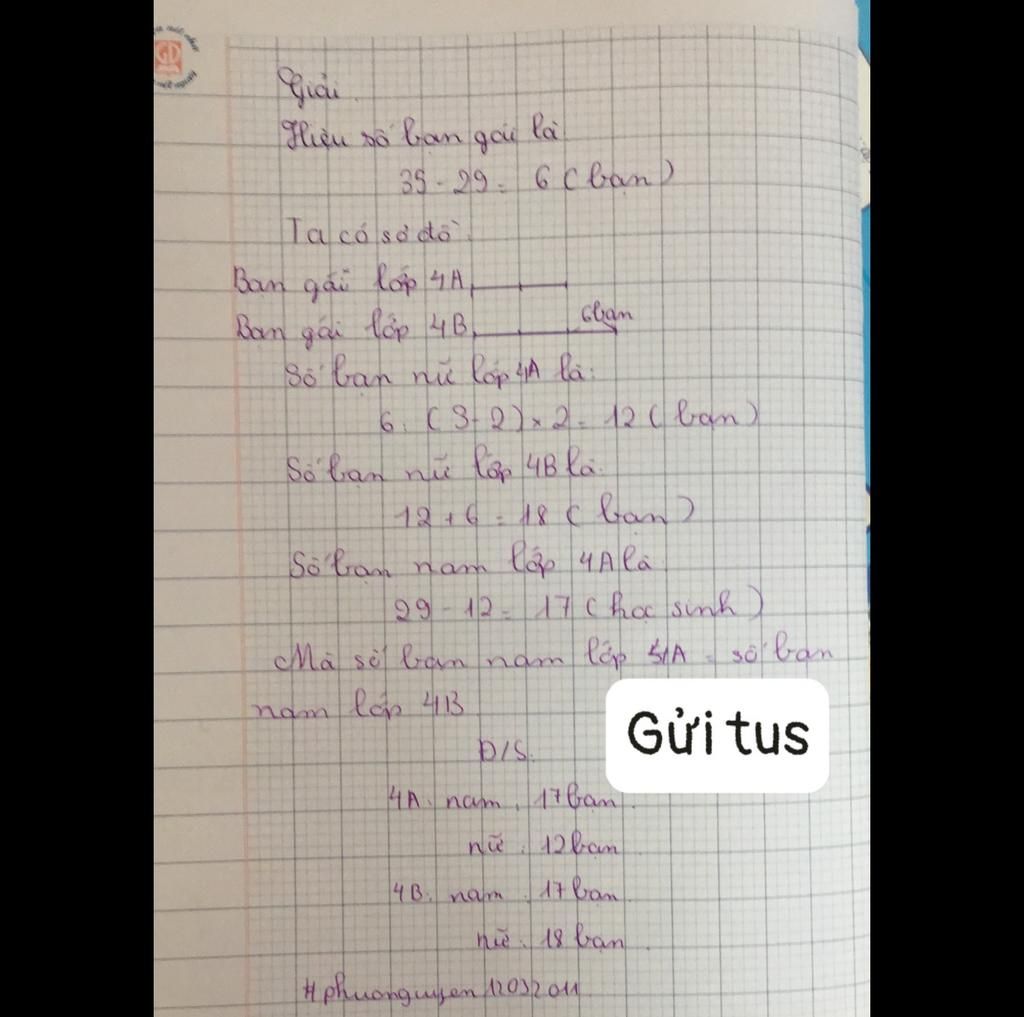 GD
Giải.
Hiệu số bạn gái là
35 - 29 = 6 (bạn)
Ta có sơ đồ
Bạn gái lớp 4A
Bạn gái lớp 4B 6bạn
Số bạn nữ lớp 4A là:
6 : (3-2) x 2 = 12 (bạn)
Số bạn nữ lớp 4B là:
12 + 6 = 18 (bạn)
Số bạn nam lớp 4A là
29 - 12 = 17 (học sinh)
Mà số bạn nam lớp 4A = số bạn
nam lớp 4B
Gửi tus
Đ/S:
4A: nam : 17 bạn.
nữ : 12 bạn
4B: nam : 17 bạn.
nữ : 18 bạn.
#phuonguyen12032011